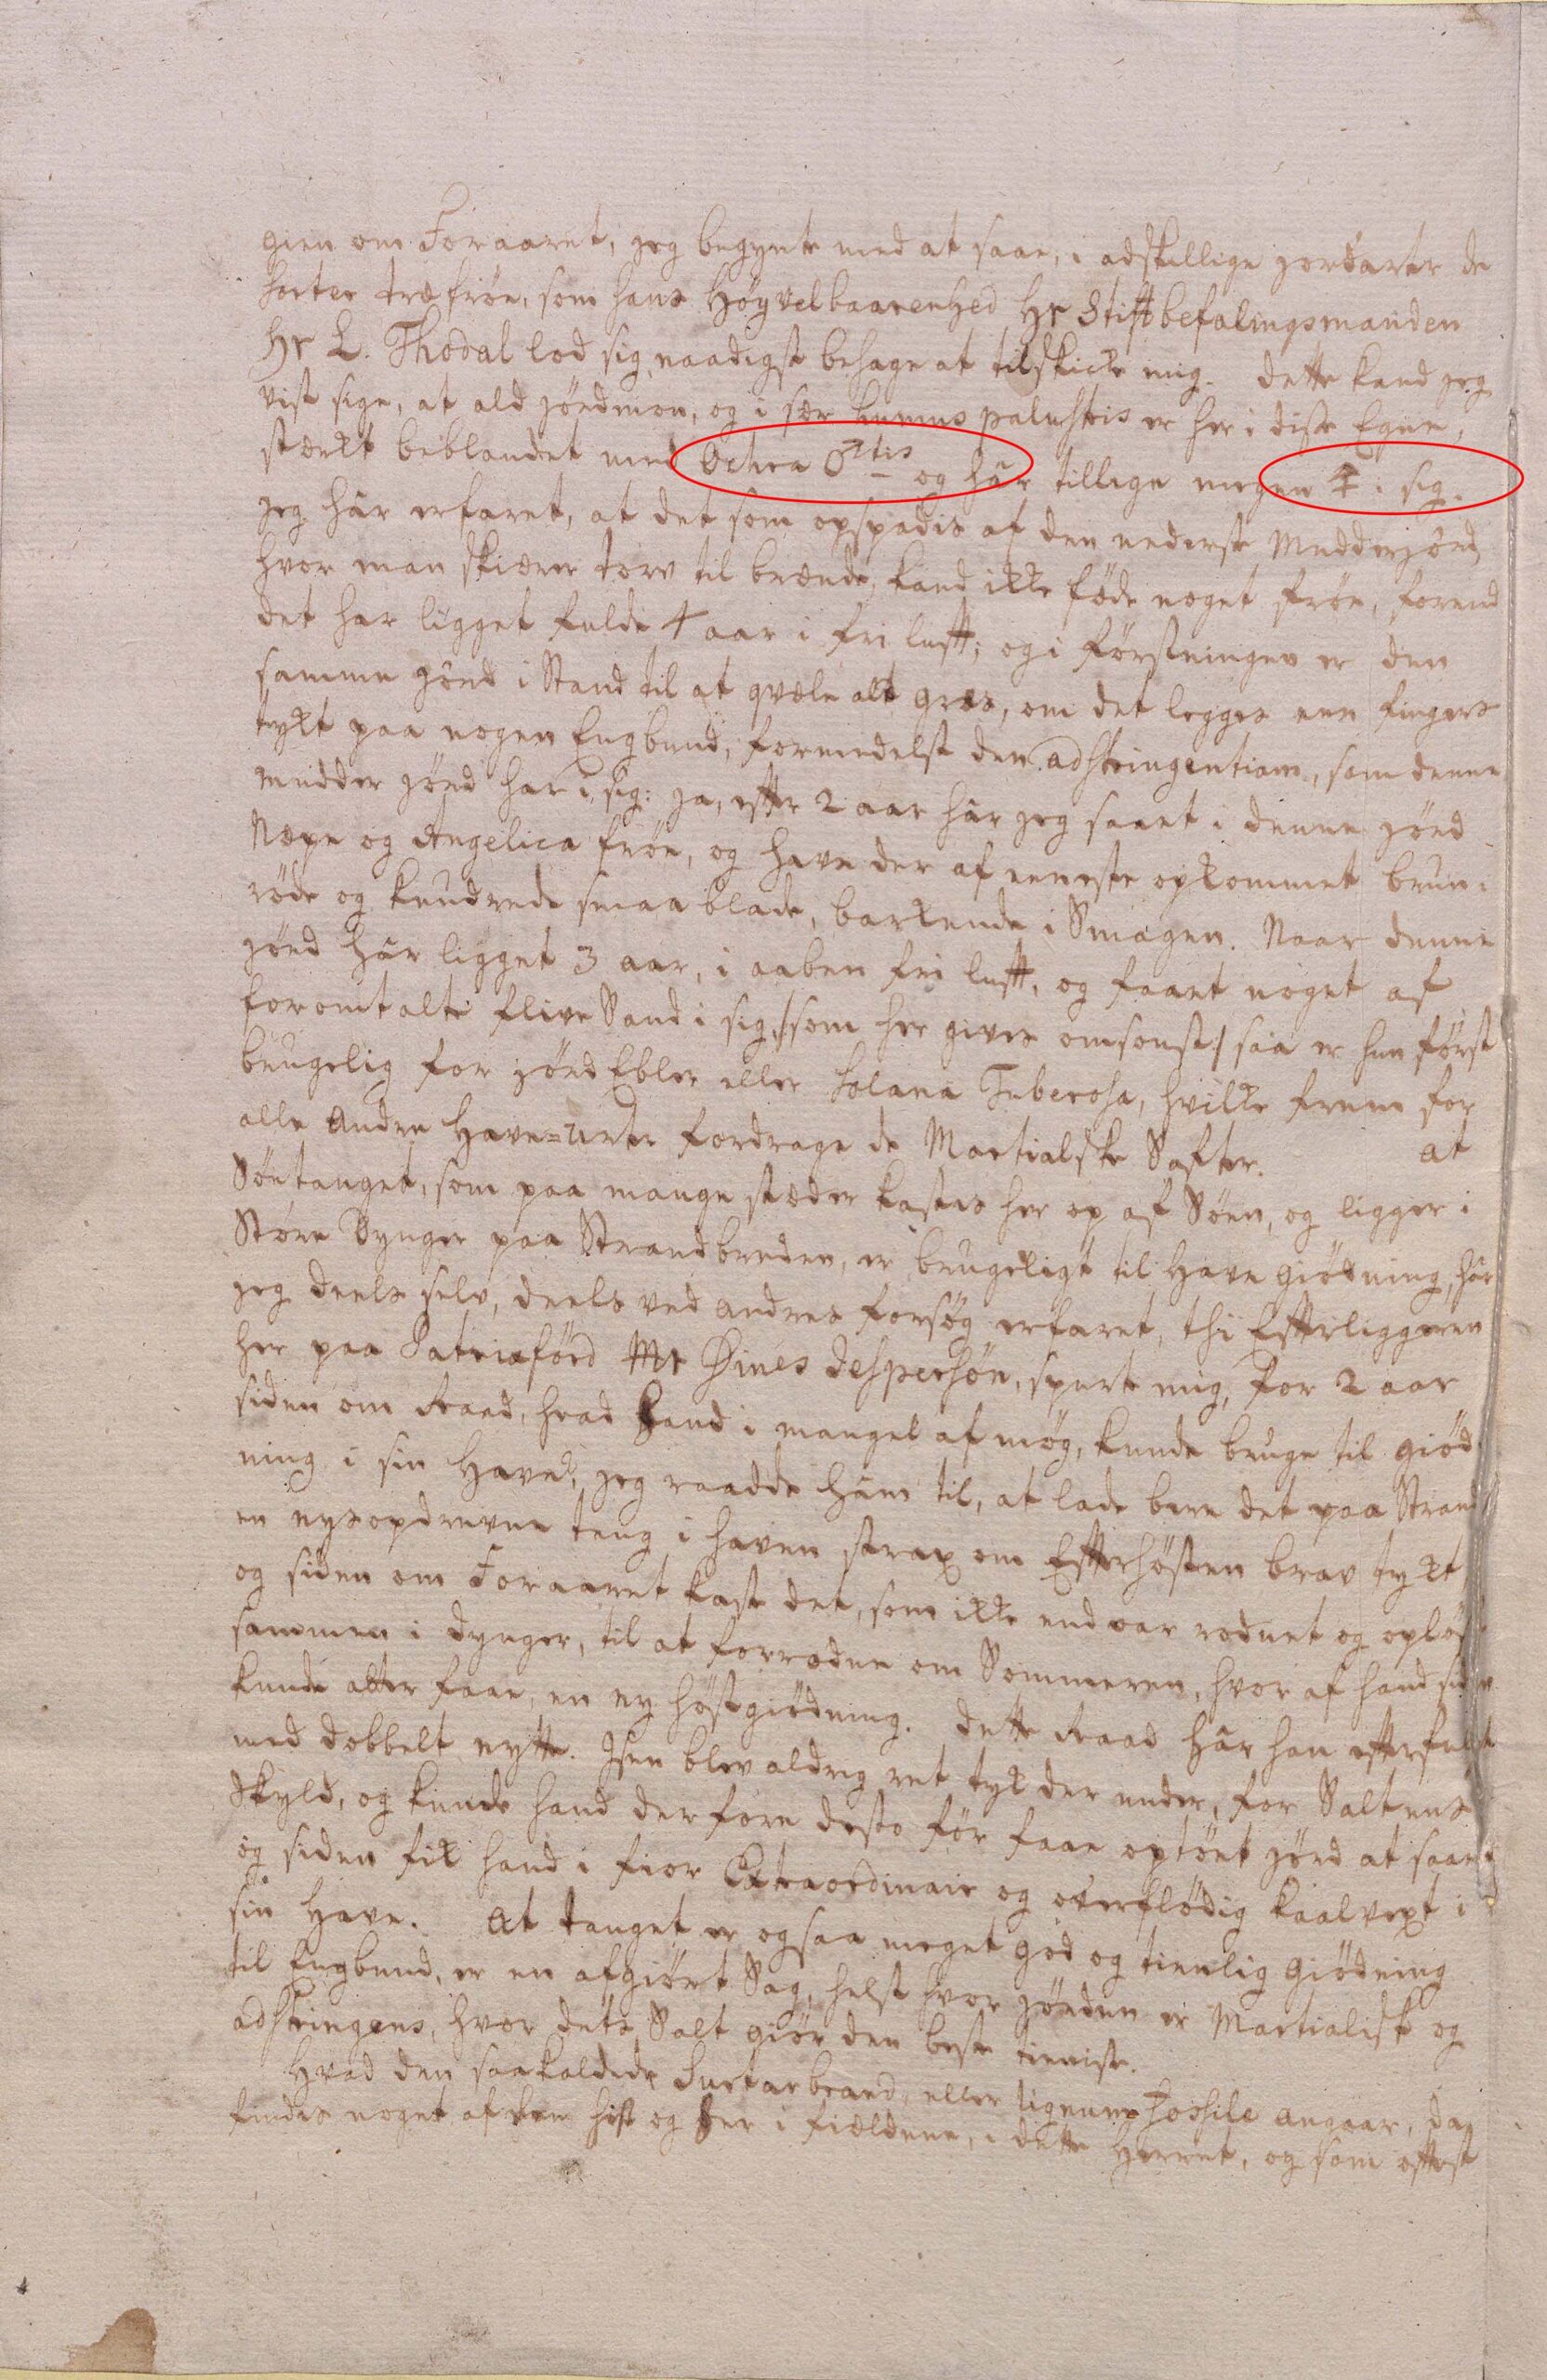 gien om Foraaret, jeg begynte med at saae, i adskillige jordarter de
sorter træfröe, som hans Höyvelbaarenhed Hr Stiftbefalingsmanden
Hr L. Thodal lod sig naadigst behage at tilskicke mig. dette kand jeg
vist sige, at ald jördmon, og i sær humus palustris er her i disse Egne,
stærkt beblandet med Ochra ♂tis og hâr tillige megen 🜍 i sig.
jeg hâr erfaret, at det som opspadis af den nederste Mudderjörd,
hvor man skiærer torv til brænde, kand ikke föde noget fröe, forend
det har ligget fulde 4 aar i fri luft; og i förstningen er den
samme jörd i Stand til at qvæle alt græs, om det legges een fingers
tykt paa nogen Engbund, formedelst den adstringentiam, som denne
mudder jörd har i sig: ja, efter 2 aar hâr jeg saaet i denne jörd
Næpe og Angelica fröe, og have der af eeneste opkommet brun-
röde og knudrede smaa blade, barkende i Smagen. Naar denne
jörd hâr ligget 3 aar, i aaben fri luft, og faaet noget af
foromtalte flive Sand i sig,/som her gives omsonst:/ saa er hun först
brugelig for jördEbler eller Solana Tuberosa, hvilke frem for
alle andre Have=urter fordrage de Martialske Safter. at
Söetanget, som paa mange stæder kastes her op af Söen, og ligger i
Store Dynger paa Strandbreden, er brugeligt til Have giödning, hâr
jeg deels selv, deels ved andres forsög erfaret, thi Efterliggeren
her paa Patrixfiörd Mr Dines Jespersön, spurte mig, for 2 aar
siden om Raad, hvad Hand i mangel af mög, kunde bruge til giöd-
ning i sin Have?, jeg raadde ham til, at lade bere det paa Strand
en nysopdrevne tang i haven strax om Efterhösten brav tykt
og siden om Foraaret kaste det, som ikke end var rodnet og oplöst
sammen i dynger, til at forrodne om Sommeren, hvor af hand siden
kunde atter faae, en ny höstgiödning. dette Raad hâr han efterfulgt
med dobbelt nytte. Isen blev aldrig ret tyk der under, for Saltens
Skyld, og kunde hand derfore desto för faae optöet jörd at saae i
og siden fik hand i fior Extraordinair og overflödig kaalvext i
sin Have. At tanget er ogsaa meget god og tienlig giödning
til Engbund, er en afgiört Sag, helst hvor jörden er Martialisk og
adstringens, hvor dets Salt giör den beste tieniste.
Hvad den saakaldede Surtarbrand, eller lignum fossile angaar, da
findes noget af den hist og her i fieldene, i dette Herret, og som oftest